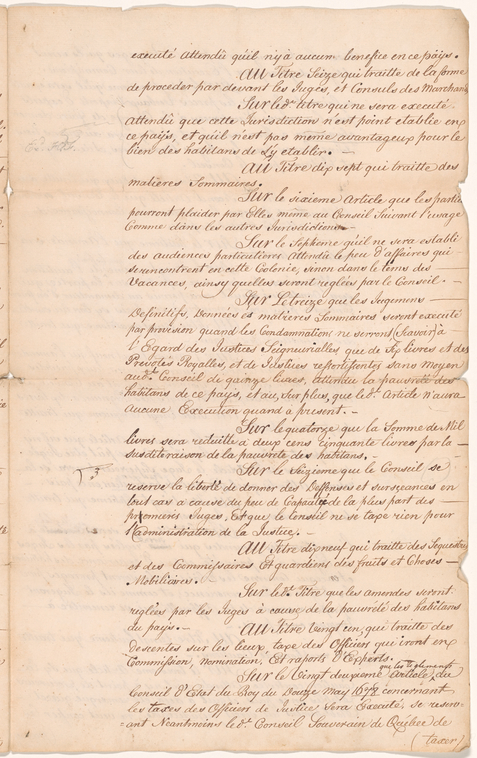 executé Attendû qu'il n'y a aucun benefice en ce païs.
AU Titre Seize qui traitte de la forme
de proceder par devant les Juges, et Consuls des Marchan
Sur led.t titre qui ne sera executé
Attendû que cette Jurisdiction n'est point etablie en
ce païs, et qu'il n'est pas même avantageux pour le
bien des habitans de L'y etablir. -
AU Titre dix sept qui traitte des
matieres Sommaires.
Sur le sixieme Article que les partie
pourront plaider par Elles même au Conseil Suivant l'usage
Comme dans les autres Jurisdictions
Sur le Septieme qu'il ne sera establi
des audiences particulieres Attendu le peu d'affaires qui
se rencontrent en cette Colonie, sinon dans le tems des
Vacances, ainsy quelles seront reglées par le Conseil. -
Sur Le treize que les Jugemens
Definitifs, Donneés es matieres Sommaires seront executé
par provision quand les Condamnations ne serront (Scavoir) à
l'Egard des Justices Seigneurialles que de Six livres et des
Prevotés Royalles, et de Justices resortissantes sans moyen
aud.t Conseil de quinze livres, attendu la pauvreté des
habitans de ce païs, et au Surplus, que led.t Article n'aura
aucune Execution quand à present. -
Sur le quatorze que la Somme de Mil
livres sera reduitte à deux cens cinquante livres par la
susdite raison de la pauvreté des habitans.
Sur le Seizieme que le Conseil se
reserve la liberté de donner des Deffenses et surséances en
tout cas à cause du peu de Capacité de la plus part des
premiers Juges, Et que le Conseil ne se taxe rien pour
l'administration de la Justice.
AU Titre dix neuf qui traitte des Sequestres
et des Commissaires Et guardiens des fruits et Choses
Mobiliaires.
Sur led.t Titre que les amendes seront
reglées par les Juges à cause de la pauvreté des habitans
du païs. -
AU Titre Vingt en, qui traitte des
descentes sur les lieux, taxe des Officiers qui iront en
Commission, Nomination, Et raports d'Experts.
Sur le Vingt deuxieme Article, que les Reglements du
Conseil d'Estat du Roy du Douze May 1678 concernant
les taxes des Officiers de Justice Sera Executé, se reserv
ant Neantmoins led.t Conseil Souverain de Québec de
(taxer)